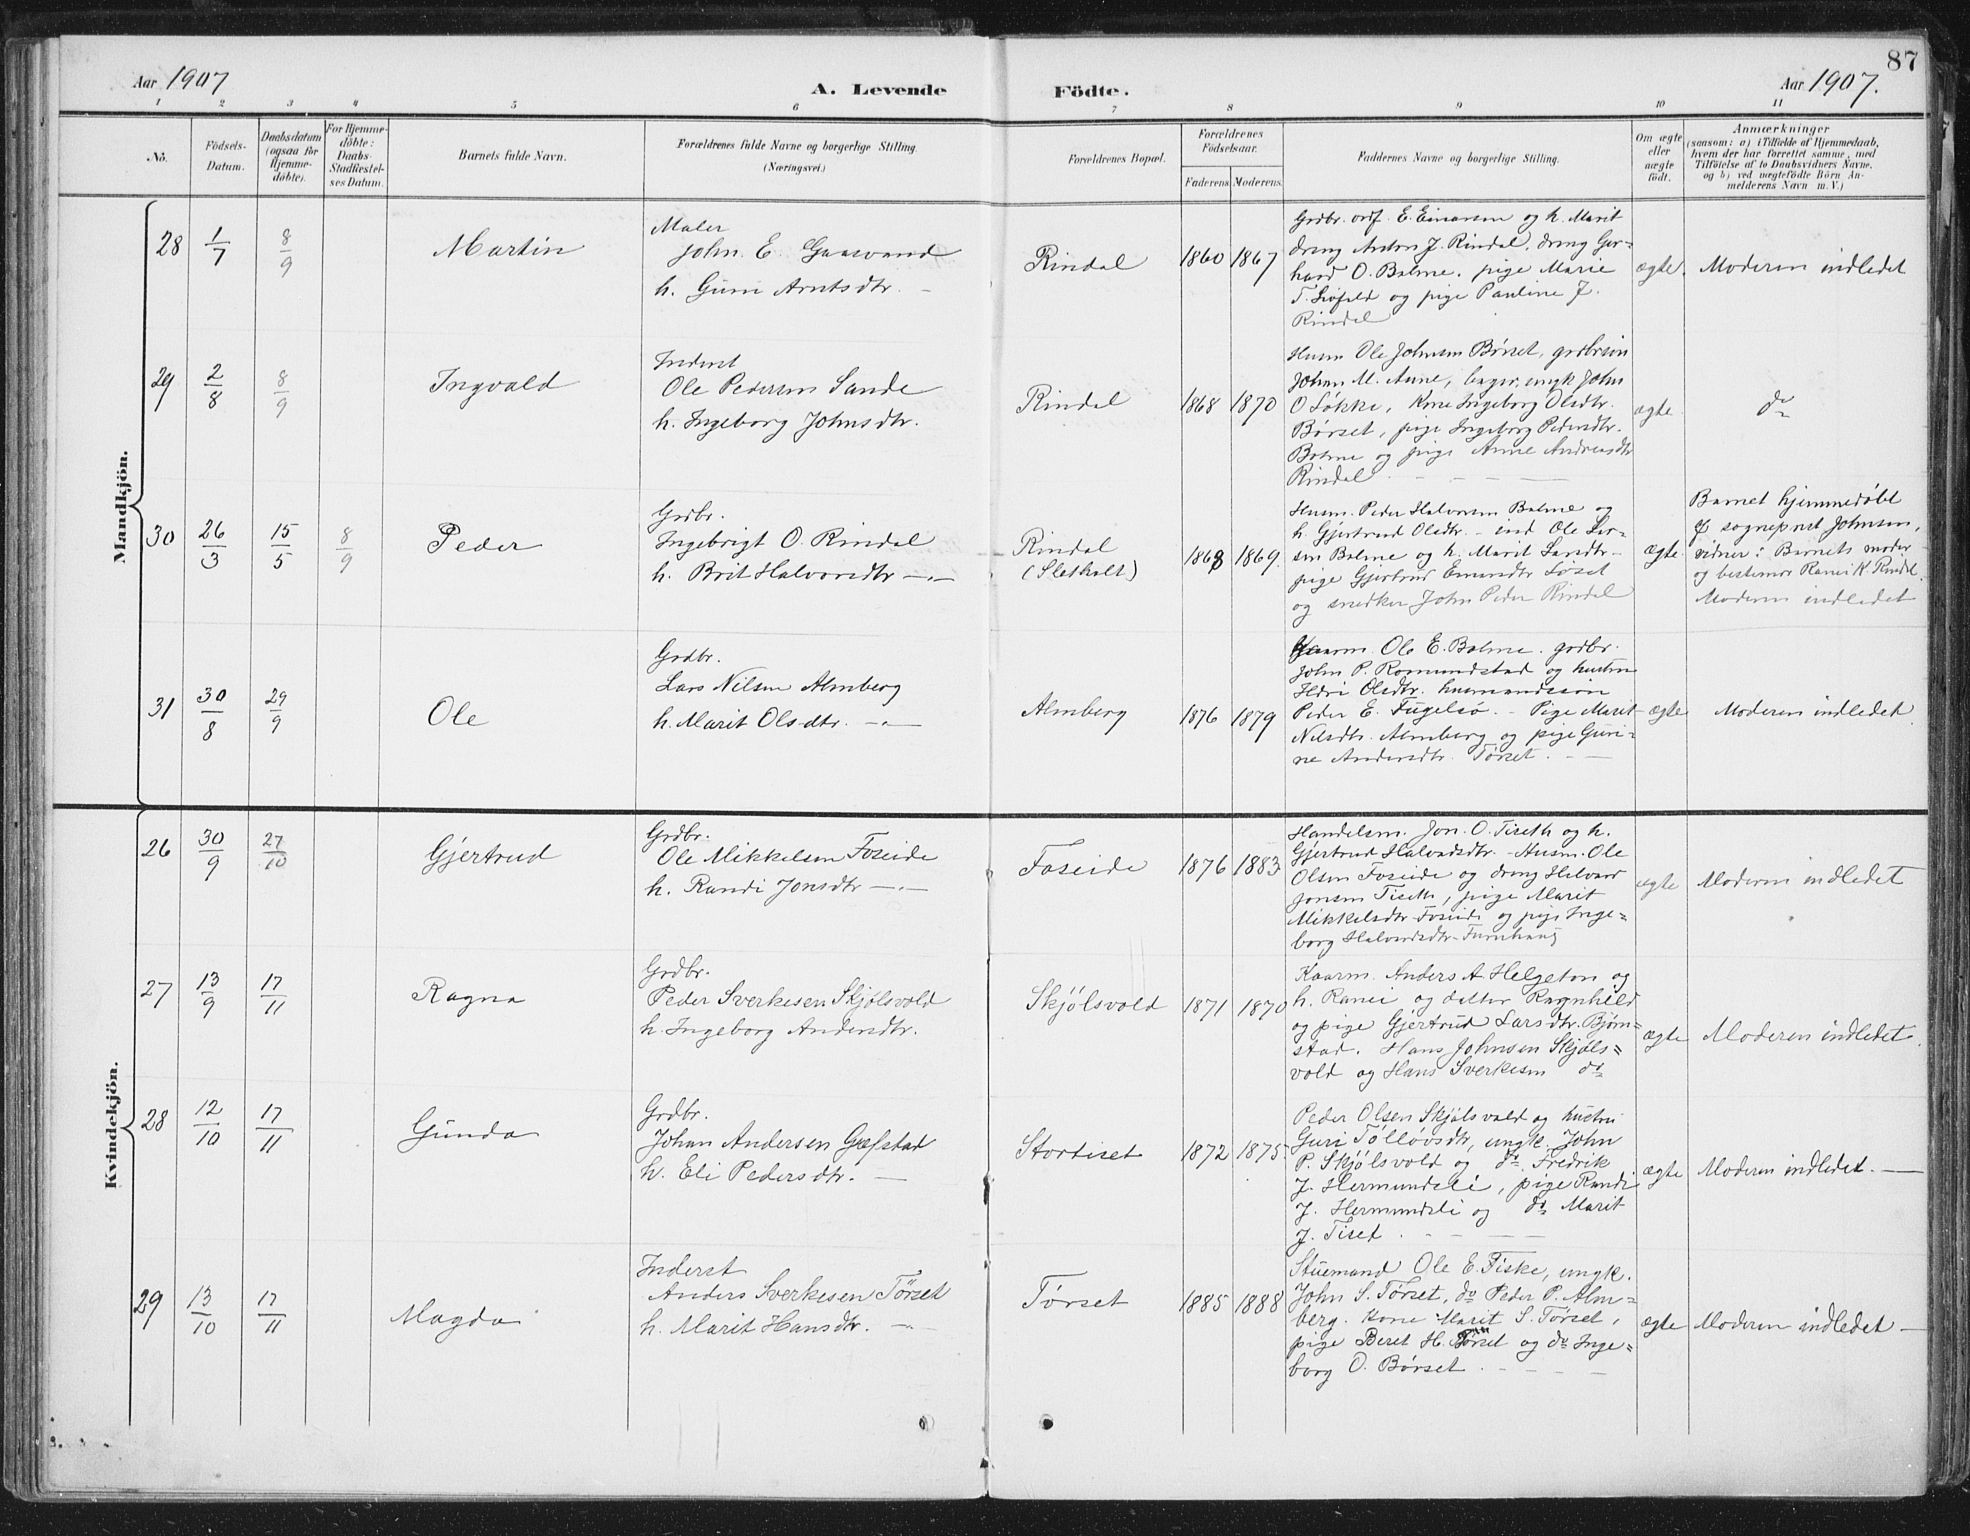 87
Aar 1907
A. Levende
Födte.
Aar 1907.
1 2 3 4 5 6 7 8 9 10 11
No.
Födsels-Datum.
Daabsdatum (ogsaa for Hjemmedöbte).
For Hjemmedöbte: Daabs-Stadfæstelses Datum.
Barnets fulde Navn.
Forældrenes fulde Navne og borgerlige Stilling.
(Næringsvei.)
Forældrenes Bopæl.
Forældrenes Födselsaar.
Faderens Moderens.
Faddernes Navne og borgerlige Stilling.
Om ægte eller uægte födt.
Anmærkninger
(saasom: a) i Tilfælde af Hjemmedaab,
hvem der har forrettet samme, med
Tilföielse af to Daabsvidners Navne,
og b) ved uægtefödte Börn An-
melderens Navn m. V.)
Mandkjön.
28 1/7 8/9 Martin
Maler
John E. Gaasvand
h. Guri Arntsdtr. -
Rindal 1860 1867
Grdbr. ordf. E. Einarsen og h. Marit
dreng Anton J. Rindal, dreng Ger-
hard O. Bolme, pige Marie
T. Løfald og pige Pauline J.
Rindal
ægte. Moderen indledet
29 2/8 8/9 Ingvald
Inderst
Ole Pedersen Sande
h. Ingeborg Johnsdtr.
Rindal 1868 1870
Husm Ole Johnsen Børset, grdbrsøn
Johan M. Aune, bager, ungk John
O Løkke, Kone Ingeborg Olsdtr.
Børset, pige Ingeborg Pedersdtr.
Bolme og pige Anne Andreasdtr
Rindal - - - -
ægte. do
30 26/3 15/5 8/9 Peder
Grdbr.
Ingebrigt O. Rindal
h. Brit Halvorsdtr -"-
Rindal
(Sletholt) 1868 1869.
Husm. Peder Halvorsen Bolme og
h. Gjertrud Olsdtr. - ind Ole Lar-
sen Bolme og h. Marit Larsdtr -
pige Gjertrud Einarsdtr Løset
og snedker John Peder Rindal
ægte.
Barnet hjemmedøbt
af sogneprest Johnsen,
vidner: Barnets moder
og bestemor Ranei K. Rindal.
Moderen indledet
31 30/8 29/9 Ole
Grdbr.
Lars Nilsen Almberg
h. Marit Olsdtr. -"-
Almberg 1876 1879
Ole E. Bolme. grdbr.
John P. Romundstad og hustru
Ildri Olsdtr. husmandssøn
Peder E. Fugelsø. - Pige Marit
Nilsdtr. Almberg og pige Guri-
ne Andersdtr. Tørset. - -
ægte Moderen indledet.
Kvindekjön.
26 30/9 27/10 Gjertrud
Grdbr.
Ole Mikkelsen Foseide
h. Randi Jonsdtr -"-
Foseide 1876 1883
Handelsm. Jon. O. Tiseth og h.
Gjertrud Halvardsdtr. - Husm. Ole
Olsen Foseide og dreng Halvard
Jonsen Tiseth, pige Marit
Mikkelsdtr Foseide og pige Inge=
borg Halvardsdtr. Furuhaug
ægte Moderen indledet
27 13/9 17/11 Ragna
Grdbr.
Peder Sverkesen Skjølsvold
h. Ingeborg Andersdtr.
Skjølsvold 1871 1870
Kaarm. Anders A Helgeton og
h. Ranei og datter Ragnhild
og pige Gjertrud Larsdtr. Bjørn=
stad. Hans Johnsen Skjøls=
vold og Hans Sverkesen do
ægte Moderen indledet.
28 12/10 17/11 Gunda
Grdbr.
Johan Andersen Gaasstad
h. Eli Pedersdtr. -
Stortiset 1872 1875
Peder Olsen Skjølsvold og hustru
Guri Tølløvsdtr, ungk. John
P. Skjølsvold og do Fredrik
J. Hermundsli, pige Randi
J. Hermundsli og do Marit
J. Tiset. - - -
ægte Moderen indledet. -
29 13/10 17/11 Magda
Inderst
Anders Sverkesen Tørset
h. Marit Hansdtr. -"-
Tørset 1885 1888
Stuemand Ole E. Fiske, ungk.
John S. Tørset, do Peder P. Alm=
berg. Kone Marit S. Tørset,
pige Beret H. og do Inge=
borg O. Børset. - - -
ægte Moderen indledet -